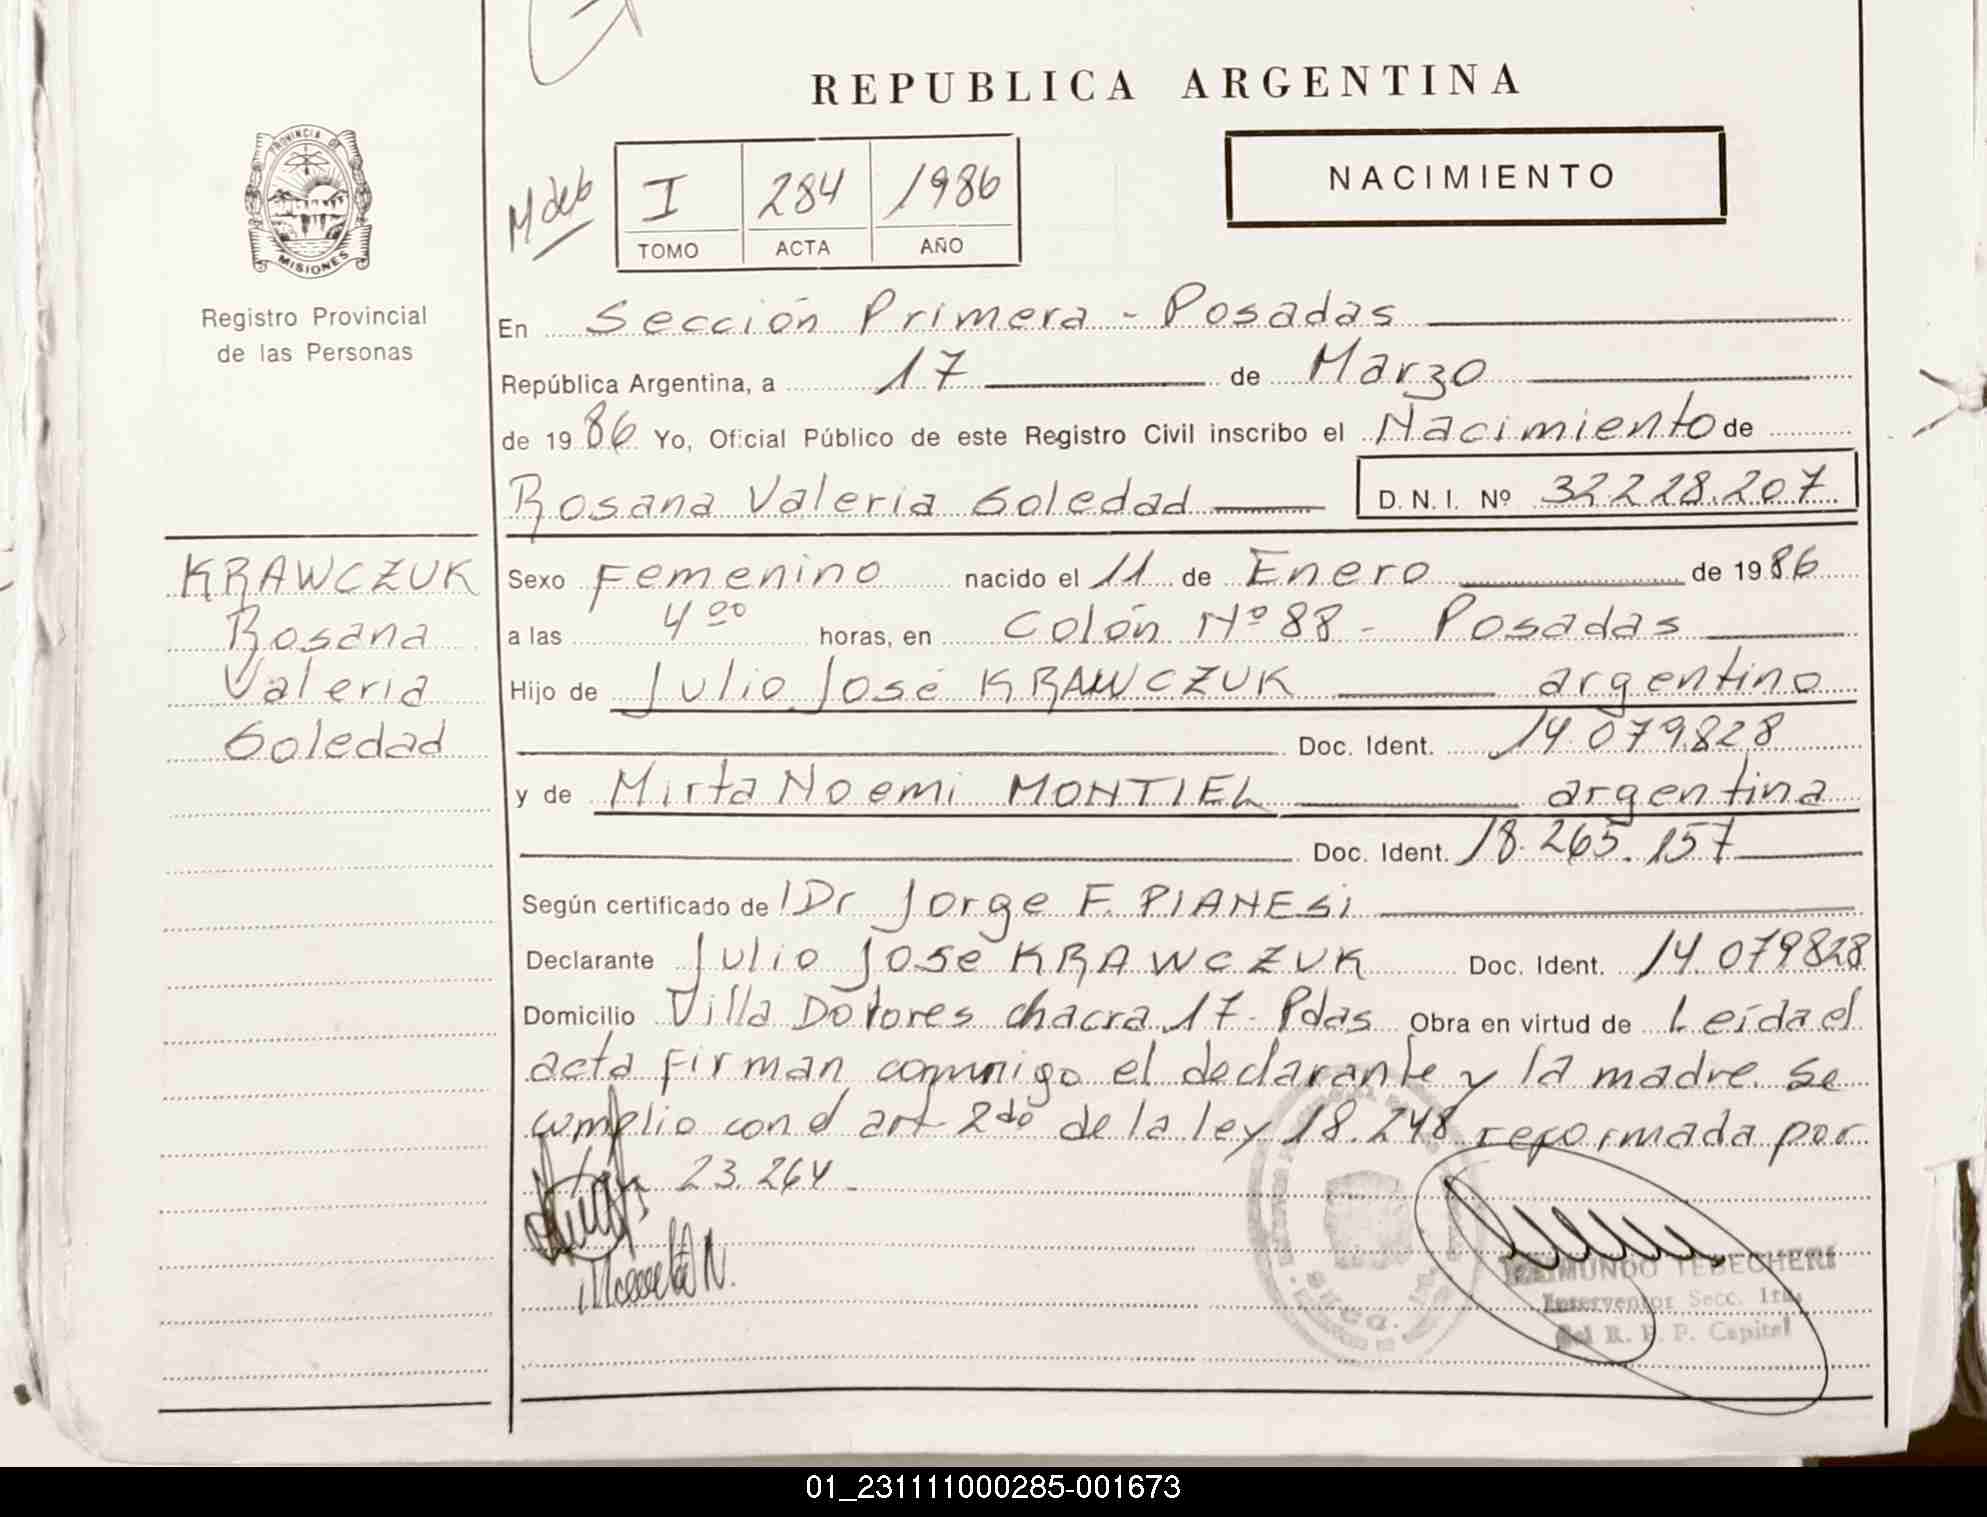 REPUBLICA ARGENTINA
PROVINCIA DE
MISIONES
Registro Provincial
de las Personas
I 284 1986
TOMO ACTA AÑO
NACIMIENTO
En Sección Primera - Posadas
República Argentina, a 17 de Marzo
de 1986 Yo, Oficial Público de este Registro Civil inscribo el Nacimiento de
Rosana Valeria Soledad D. N. I. Nº 32.228.207
KRAWCZUK
Rosana
Valeria
Soledad
Sexo Femenino nacido el 11 de Enero de 1986
a las 4 00 horas, en Colón Nº 88 - Posadas
Hijo de Julio José KRAWCZUK argentino
Doc. Ident. 14.079.828
y de Mirta Noemi MONTIEL argentina
Doc. Ident. 18.265.157
Según certificado de Dr Jorge F. PIANESi
Declarante Julio José KRAWCZUK Doc. Ident. 14.079828
Domicilio Villa Dolores chacra 17 - Pdas Obra en virtud de Leída el
acta firman conmigo el declarante y la madre. Se
cumplio con el art 2do de la ley 18.248 reformada por
23.264 -
RAIMUNDO TEBECHERI
Interventor Secc. 1ra.
del R. P. P. Capital
01_231111000285-001673